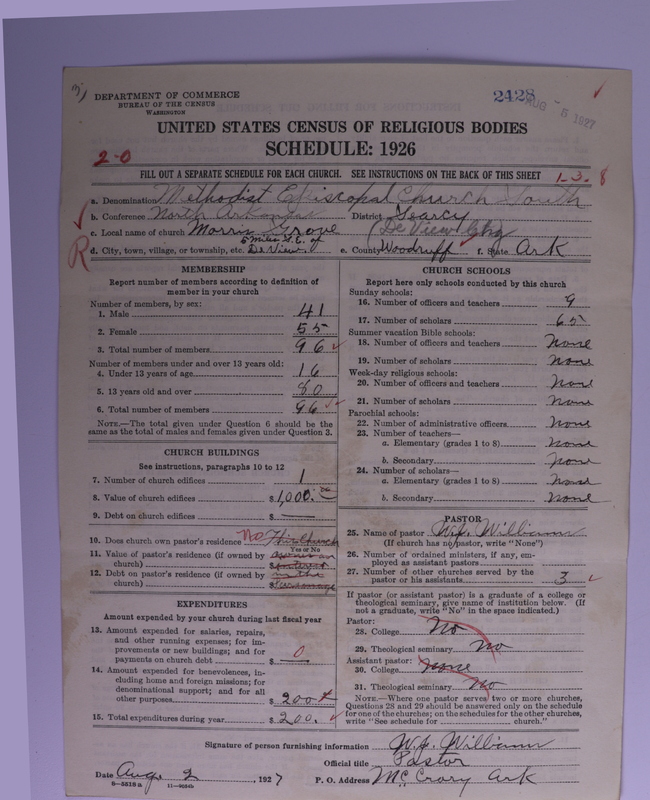 DEPARTMENT OF COMMERCE
BUREAU OF THE CENSUS
WASHINGTON
2428
AUG 5 1927
UNITED STATES CENSUS OF RELIGIOUS BODIES
SCHEDULE: 1926
2-0
FILL OUT A SEPARATE SCHEDULE FOR EACH CHURCH. SEE INSTRUCTIONS ON THE BACK OF THIS SHEET
1-3. 8
a. Denomination Methodist Episcopal Church South
b. Conference North Arkansas District Searcy
c. Local name of church Morris Grove (De View Chg
R
d. City, town, village, or township, etc. 5 miles S.E. of De View e. County Woodruff f. State Ark
MEMBERSHIP
Report number of members according to definition of
member in your church
Number of members, by sex:
1. Male 41
2. Female 55
3. Total number of members 96
Number of members under and over 13 years old:
4. Under 13 years of age 16
5. 13 years old and over 80
6. Total number of members 96
NOTE.—The total given under Question 6 should be the
same as the total of males and females given under Question 3.
CHURCH BUILDINGS
See instructions, paragraphs 10 to 12
7. Number of church edifices 1
8. Value of church edifices $1,000.
9. Debt on church edifices $ —
10. Does church own pastor's residence No This Church
Yes or No
11. Value of pastor's residence (if owned by
church) $
12. Debt on pastor's residence (if owned by in the
church) $ Parsonage
EXPENDITURES
Amount expended by your church during last fiscal year
13. Amount expended for salaries, repairs,
and other running expenses; for im-
provements or new buildings; and for
payments on church debt $ — 0
14. Amount expended for benevolences, in-
cluding home and foreign missions; for
denominational support; and for all
other purposes $ 200
15. Total expenditures during year $ 200.
CHURCH SCHOOLS
Report here only schools conducted by this church
Sunday schools:
16. Number of officers and teachers 9
17. Number of scholars 65
Summer vacation Bible schools:
18. Number of officers and teachers None
19. Number of scholars None
Week-day religious schools:
20. Number of officers and teachers None
21. Number of scholars None
Parochial schools:
22. Number of administrative officers None
23. Number of teachers—
a. Elementary (grades 1 to 8) None
b. Secondary None
24. Number of scholars—
a. Elementary (grades 1 to 8) None
b. Secondary None
PASTOR
25. Name of pastor Williams
(If church has no pastor, write "None")
26. Number of ordained ministers, if any, em-
ployed as assistant pastors
27. Number of other churches served by the
pastor or his assistants 3
If pastor (or assistant pastor) is a graduate of a college or
theological seminary, give name of institution below. (If
not a graduate, write "No" in the space indicated.)
Pastor:
28. College No
29. Theological seminary No
Assistant pastor:
30. College None
31. Theological seminary No
NOTE.—Where one pastor serves two or more churches,
Questions 28 and 29 should be answered only on the schedule
for one of the churches; on the schedules for the other churches,
write "See schedule for church."
Signature of person furnishing information Williams
Official title Pastor
Date Aug 2, 1927 P. O. Address McCrory Ark
8-5518 a 11-9024b